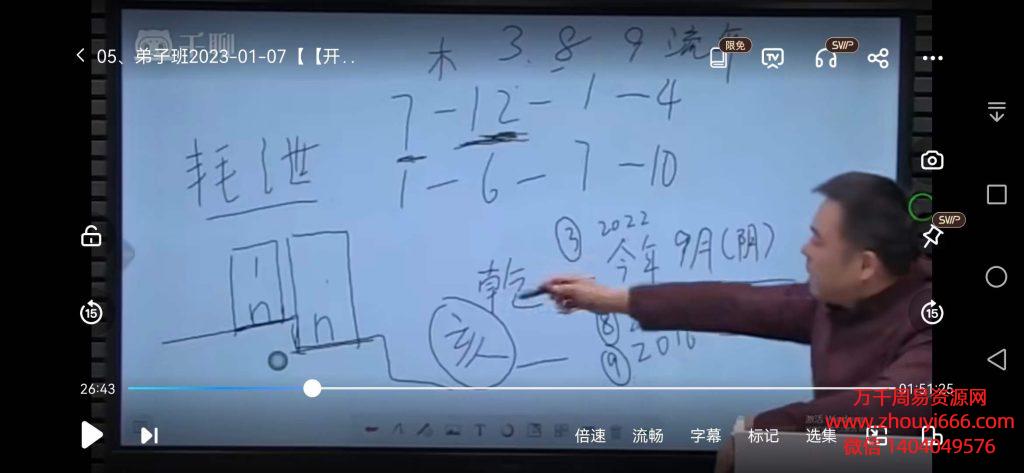 千聊
05、弟子班2023-01-07【【开...
限免
TV
SVIP
木 3.8 9 流年
7-12-1-4
耗泄
1-6-7-10
③ 2022
今年 9月(阴)
乾
亥
⑧
⑨ 2016
n n
15
15
SVIP
26:43
01:51:25
倍速 流畅 字幕 标记 选集
万千周易资源网
www.zhouyi666.com
微信 1404049576